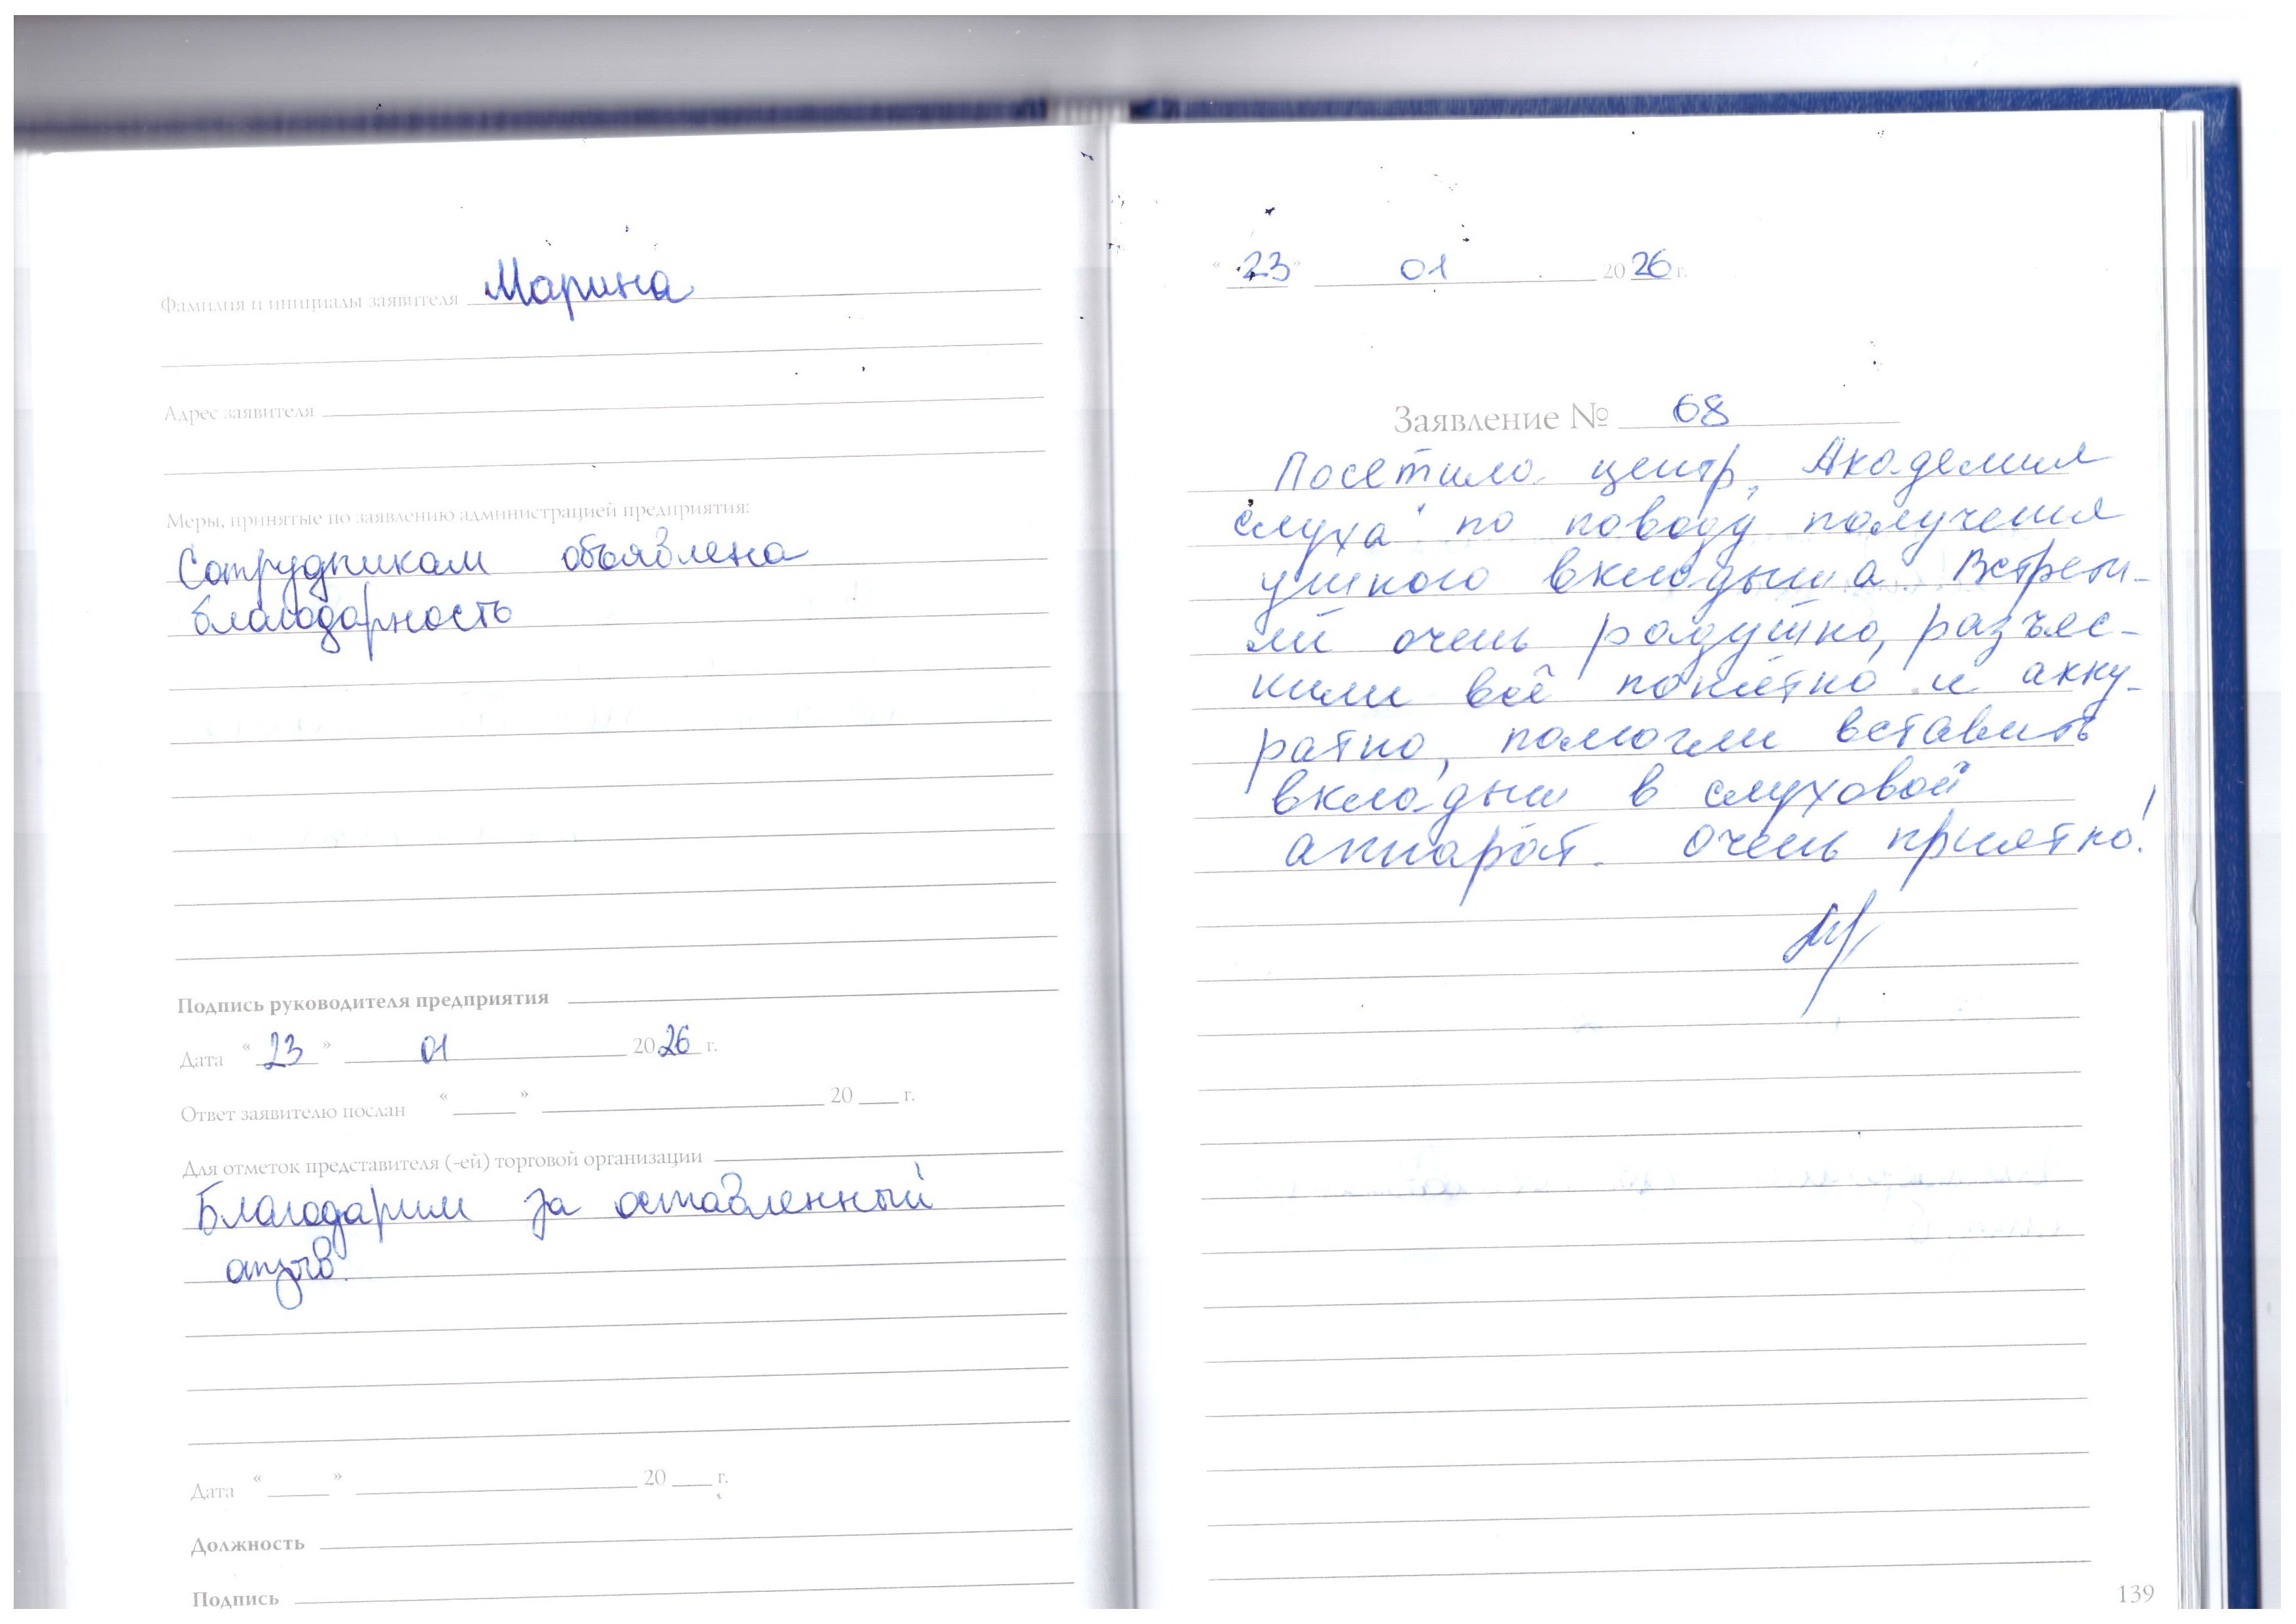 Фамилия и инициалы заявителя Марина
Адрес заявителя
Меры, принятые по заявлению администрацией предприятия:
Сотрудникам объявлена
благодарность
Подпись руководителя предприятия
Дата « 23 » 01 2026 г.
Ответ заявителю послан « » 20 г.
Для отметок представителя (-ей) торговой организации
Благодарим за оставленный
отзыв.
Дата « » 20 г.
Должность
Подпись
« 23 » 01 2026 г.
Заявление № 68
Посетила центр "Академия
слуха" по поводу получения
ушного вкладыша. Встрети-
ли очень радушно, разъяс-
нили всё понятно и акку-
ратно, помогли вставить
вкладыш в слуховой
аппарат. Очень приятно!
139